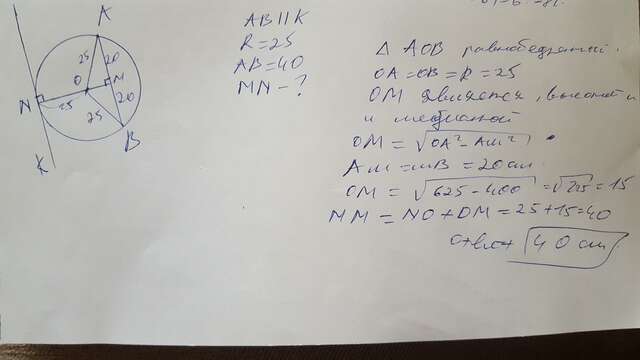 A
25
20
O
M
N
25
20
25
B
K
AB || K
R = 25
AB = 40
MN - ?
Δ AOB равнобедренный.
OA = OB = R = 25
OM является, высотой
и медианой
OM = √OA² - AM²
AM = MB = 20 см.
OM = √625 - 400 = √225 = 15
NM = NO + OM = 25 + 15 = 40
ответ 40 см